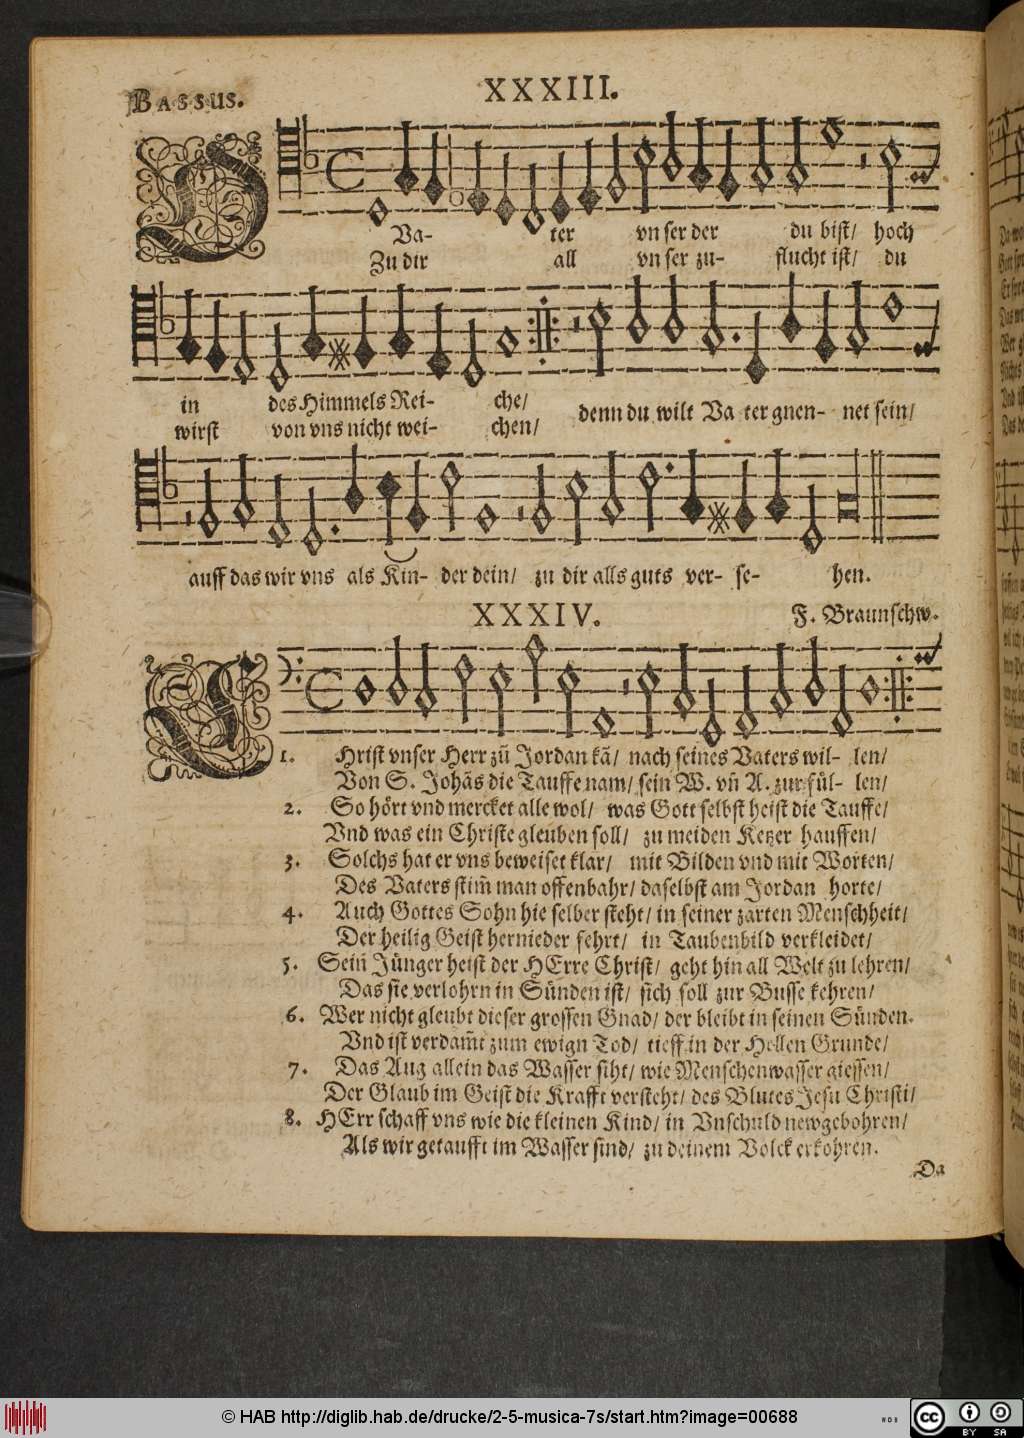 BASSUS.
XXXIII.
O
Va- ter vnser der du bist/ hoch
Zu dir all vnser zu- flucht ist/ du
in des Himmels Rei- che/ denn du wilt Va ter gnen- net sein/
wirst von vns nicht wei- chen/
auff das wir vns als Kin- der dein/ zu dir alls guts ver- se- hen.
XXXIV. F. Braunschw.
C
1. Hrist vnser Herr zũ Jordan kã/ nach seines Vaters wil- len/
Von S. Johãs die Tauffe nam/ sein W. vñ A. zur fül- len/
2. So hört vnd mercket alle wol/ was Gott selbst heist die Tauffe/
Vnd was ein Christe gleuben soll/ zu meiden Ketzer hauffen/
3. Solchs hat er vns beweiset klar/ mit Bilden vnd mit Worten/
Des Vaters stim̃ man offenbahr/ daselbst am Jordan horte/
4. Auch Gottes Sohn hie selber steht/ in seiner zarten Menschheit/
Der heilig Geist hernieder fehrt/ in Taubenbild verkleidet/
5. Sein Jünger heist der HErre Christ/ geht hin all Welt zu lehren/
Das sie verlohrn in Sünden ist/ sich soll zur Busse kehren/
6. Wer nicht gleubt dieser grossen Gnad/ der bleibt in seinen Sünden.
Vnd ist verdam̃t zum ewign Tod/ tieff in der Hellen Grunde/
7. Das Aug allein das Wasser siht/ wie Menschenwasser giessen/
Der Glaub im Geist die Krafft versteht/ des Blutes Jesu Christi/
8. HErr schaff vns wie die kleinen Kind/ in Vnschuld newgebohren/
Als wir getaufft im Wasser sind/ zu deinem Volck erkohren.
Da
© HAB http://diglib.hab.de/drucke/2-5-musica-7s/start.htm?image=00688
WDB
cc BY SA